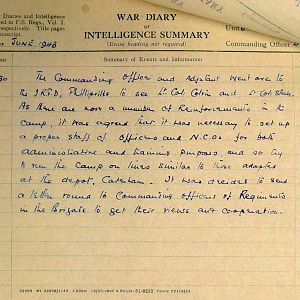 WAR DIARY
of
INTELLIGENCE SUMMARY
(Erase heading not required)
Diaries and Intelligence
ed in F.S. Regs., Vol. I.
respectively. Title pages
manuscript.
Unit
Commanding Officer
JUNE 1943
Summary of Events and Information
30
The Commanding Officer and Adjutant went over to
the I.R.T.D, Phillipville to see Lt Col Colvin and Lt Col
As there are now a number of Reinforcements in the
Camp, it was agreed that it was necessary to set up
a proper staff of officers and N.C.Os for both
administrative and training purposes, and so try
to run the Camp on lines similar to those adopted
at the depot, Caterham. It was decided to send
a letter round to Commanding Officers of Regiments
in the Brigade to get their views and cooperation.